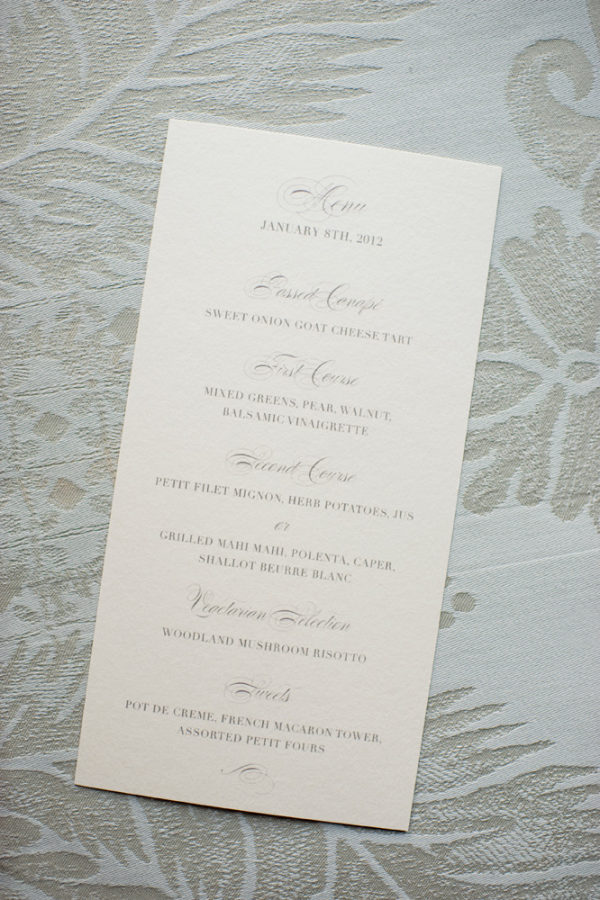 Menu
JANUARY 8TH, 2012
Passed Canapé
SWEET ONION GOAT CHEESE TART
First Course
MIXED GREENS, PEAR, WALNUT,
BALSAMIC VINAIGRETTE
Second Course
PETIT FILET MIGNON, HERB POTATOES, JUS
or
GRILLED MAHI MAHI, POLENTA, CAPER,
SHALLOT BEURRE BLANC
Vegetarian Selection
WOODLAND MUSHROOM RISOTTO
Sweets
POT DE CREME, FRENCH MACARON TOWER,
ASSORTED PETIT FOURS